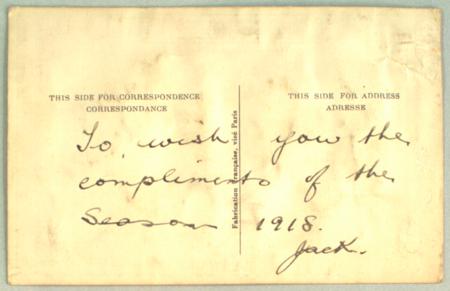 THIS SIDE FOR CORRESPONDENCE
CORRESPONDANCE
THIS SIDE FOR ADDRESS
ADRESSE
Fabrication Française, visé Paris
To wish you the
compliments of the
Season 1918.
Jack.